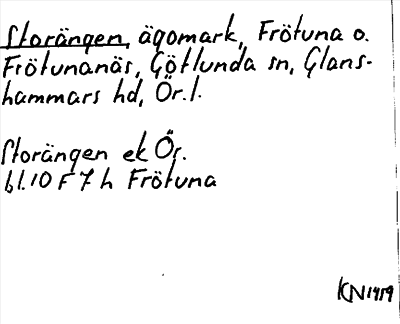 Storängen, ägomark, Frötuna o.
Frötunanäs, Götlunda sn, Glans-
hammars hd, Ör.l.
Storängen ek Ör.
bl.10 F 7 h Frötuna
KN 1959